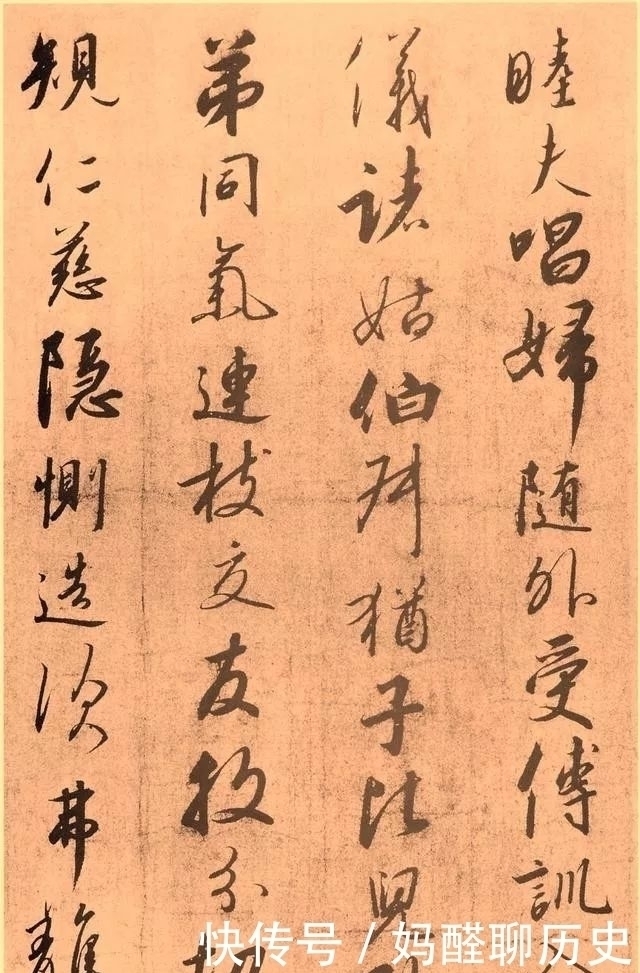 睦夫唱婦随外受傅訓
儀諸姑伯叔猶子比兒
弟同氣連枝交友投分
規仁慈隱惻造次弗離
快传号 / 妈醛聊历史